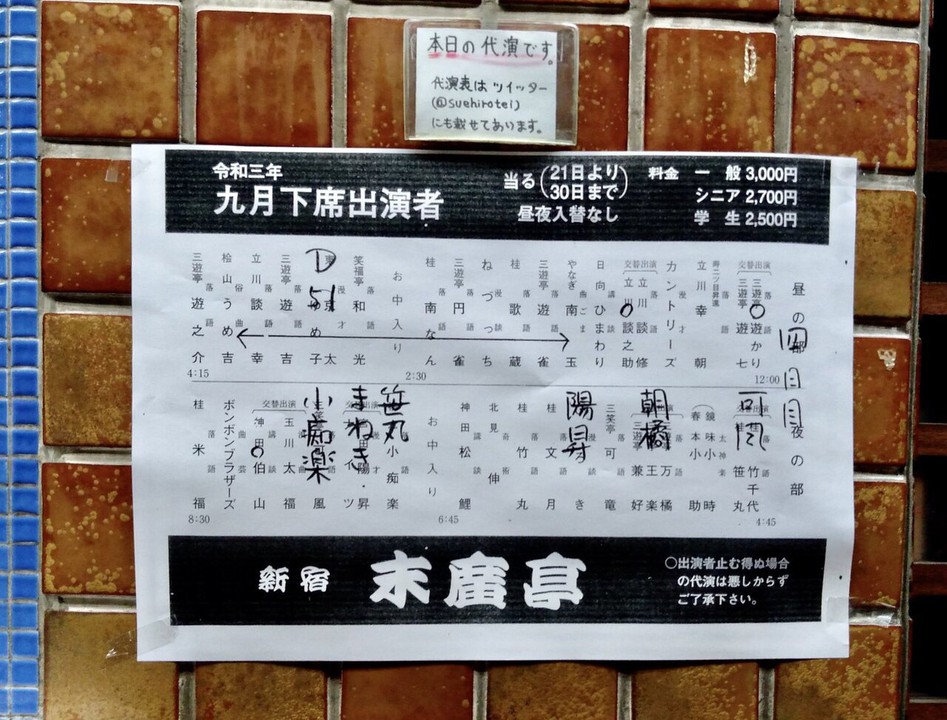 本日の代演です。
代演表はツイッター
(@suehirotei)
にも載せてあります。
令和三年
九月下席出演者
当る(21日より
30日まで)
昼夜入替なし
料金 一般 3,000円
シニア 2,700円
学生 2,500円
昼の部
四日目
12:00
交替出演
三遊亭遊かり
三遊亭遊七
落語
立川幸朝
カントリーズ
漫才
交替出演
立川談修
立川談之助
落語
日向ひまわり
やなぎ南玉
曲ごま
三遊亭遊雀
桂歌蔵
ねづっち
三遊亭円雀
桂南なん
2:30
お中入り
笑福亭和光
東京太
ゆめ子
漫才
三遊亭遊吉
立川談幸
桧山うめ吉
俗曲
三遊亭遊之介
落語
4:15
夜の部
4:45
交替出演
竹千代
笹丸
可風
鏡味小時
春本小助
太神楽
交替出演
朝橘
万橘
王楽
兼好
三笑亭可竜
陽昇
桂文月
桂竹丸
北見伸
神田松鯉
6:45
お中入り
笹丸
小痴楽
交替出演
まねき
陽・昇
小嘉楽
玉川太福
交替出演
神田伯山
ボンボンブラザーズ
曲芸
桂米福
落語
8:30
新宿 末廣亭
○出演者止む得ぬ場合
の代演は悪しからず
ご了承下さい。